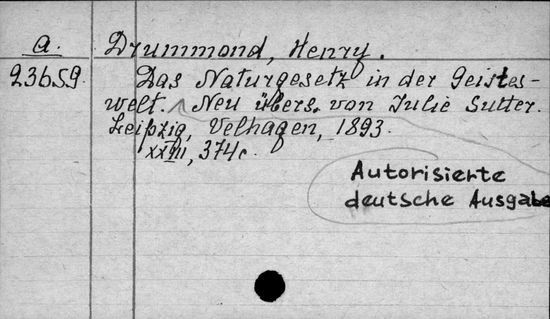 a. Drummond, Henry.
23659. Das Naturgesetz in der Geistes-
welt. Neu übers. von Julie Sutter.
Leipzig, Velhagen, 1893.
XXIII, 374c.
Autorisierte
deutsche Ausgabe